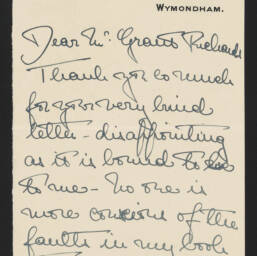 WYMONDHAM.
Dear Mr. Grant Richards
Thank you so much
for your very kind
letter - disappointing
as it is bound to be
to me - No one is
more concious of the
faults in my book